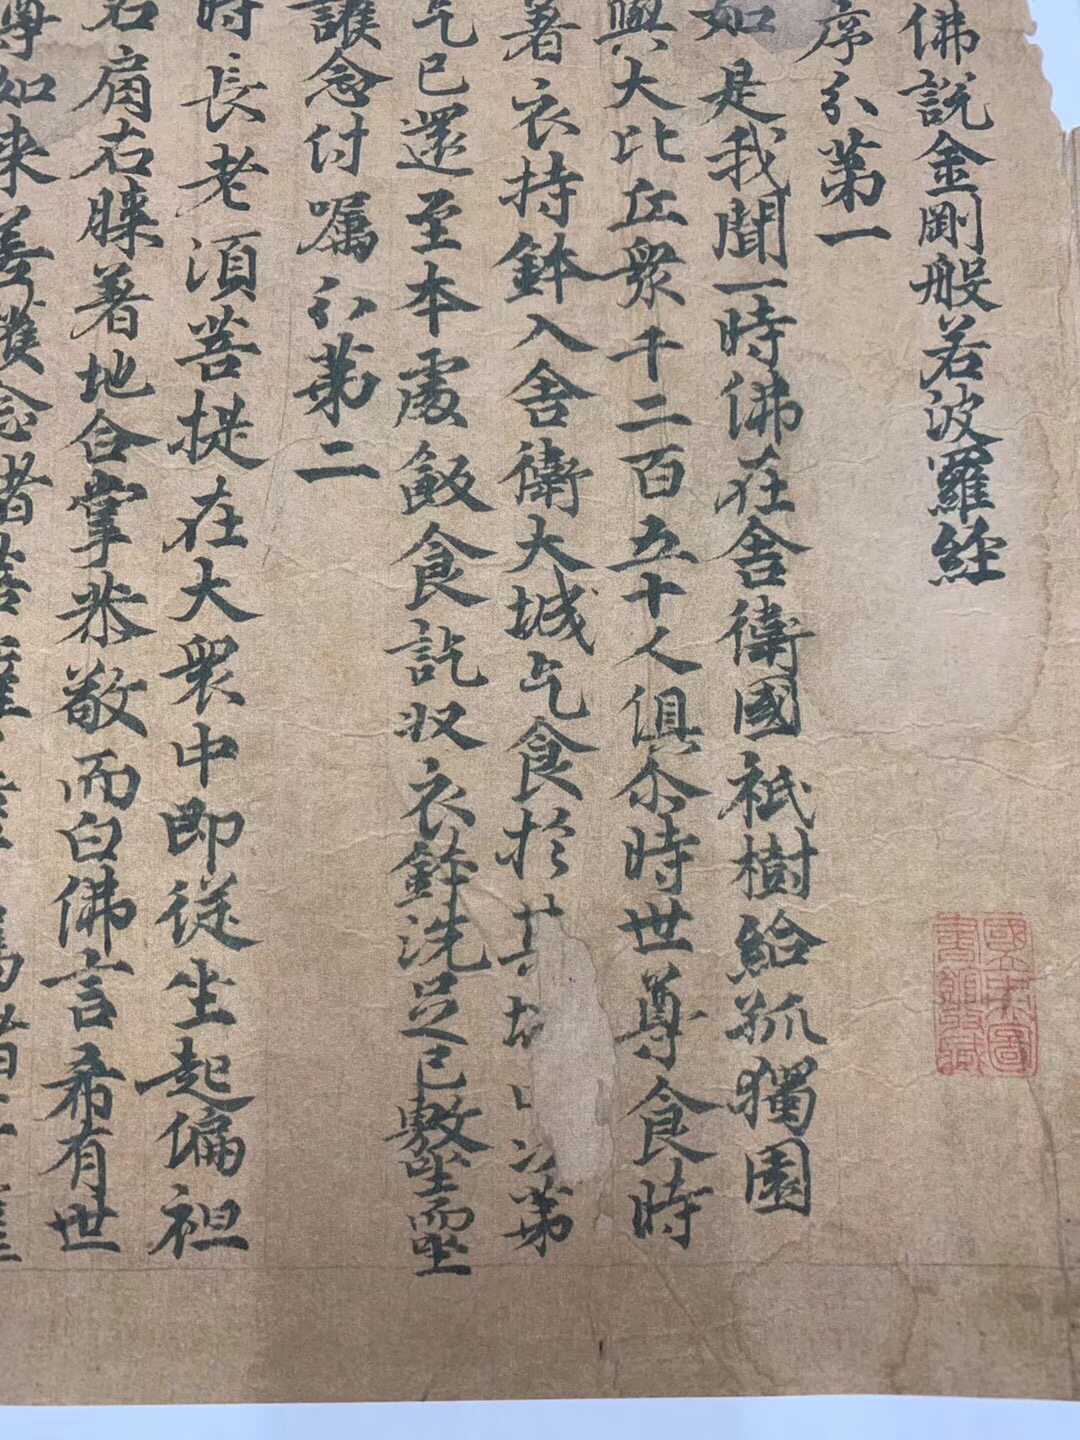 佛說金剛般若波羅經
序分第一
如是我聞一時佛在舍衛國祇樹給孤獨園
與大比丘眾千二百五十人俱尒時世尊食時
著衣持鉢入舍衛大城乞食於其城中次第
乞已還至本處飯食訖收衣鉢洗足已敷座而坐
護念付囑分第二
時長老須菩提在大眾中即從坐起偏袒
右肩右膝著地合掌恭敬而白佛言希有世
尊如來善護念諸菩薩
國立中央圖
書館收藏